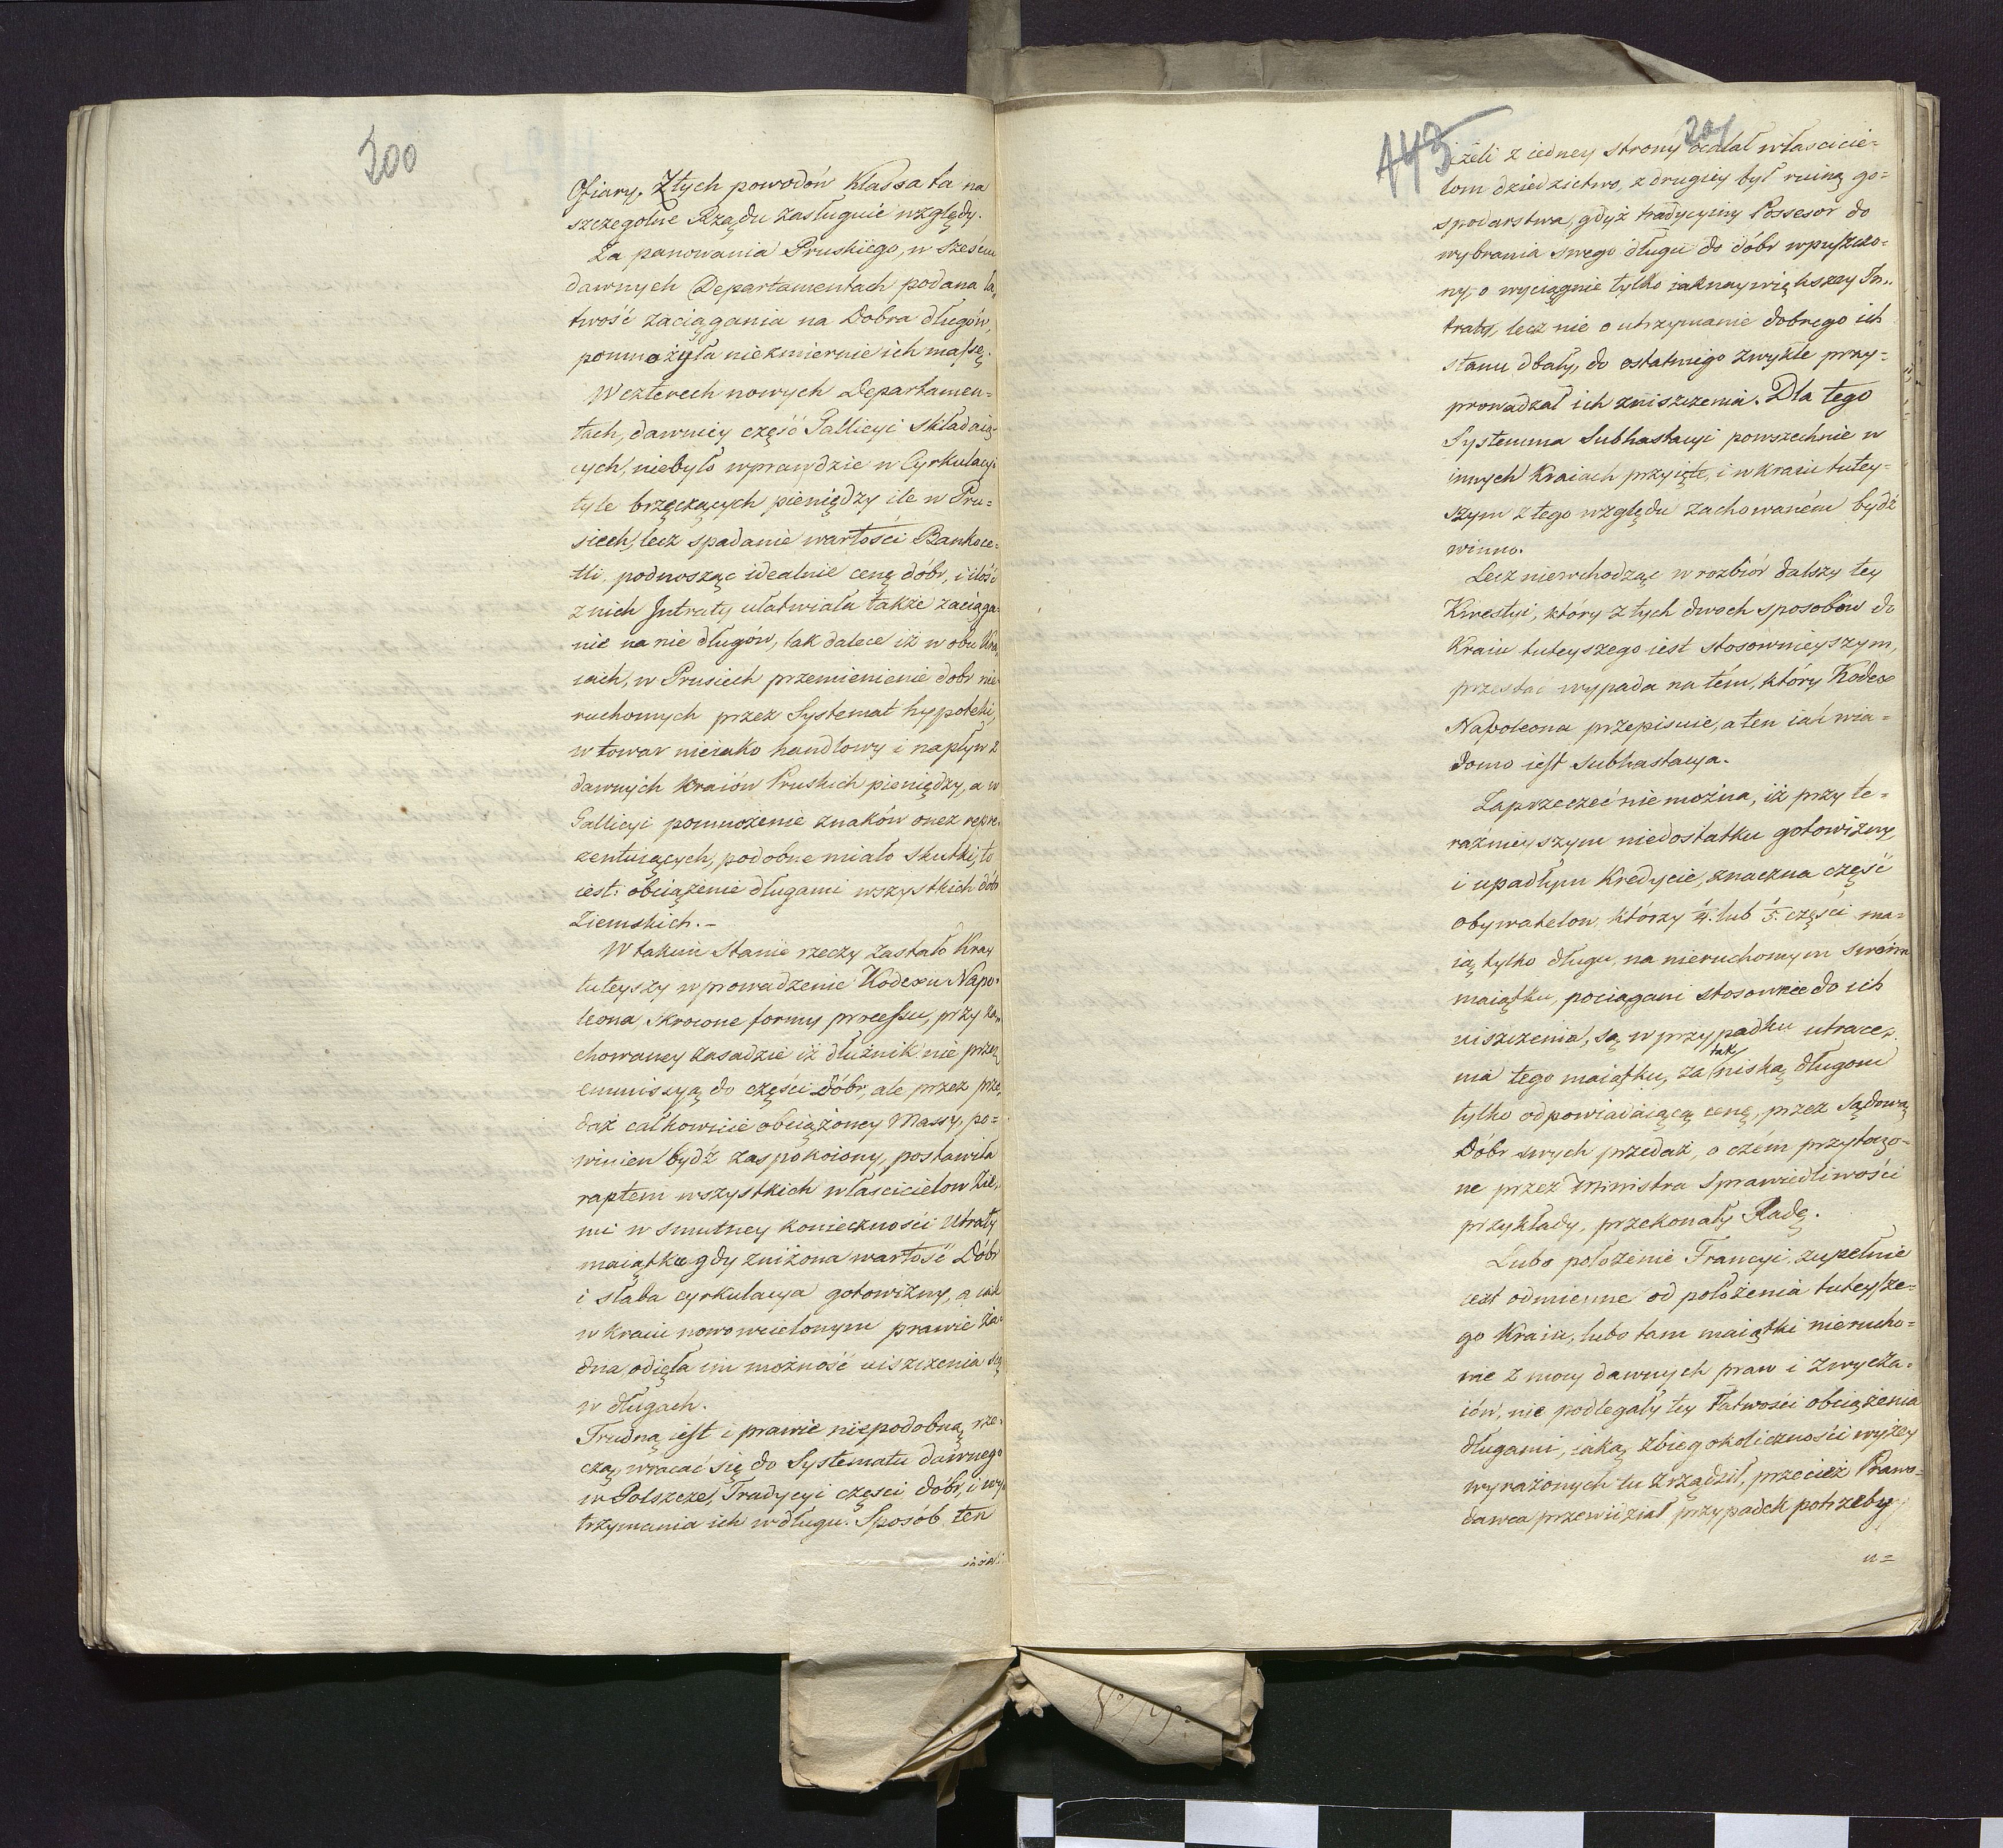 200
Ofiary. Z tych powodów Klassa ta na
szczegolne Rządu zasługuie względy.
Za panowania Pruskiego, w sześciu
dawnych Departamentach podana ła„
twość zaciągania na Dobra długów,
pomnożyła niezmiernie ich massę.
W czterech nowych Departamen=
tach, dawniey część Gallicyi składaią„
cych, niebyło wprawdzie w Cyrkulacyi
tyle brzęczących pieniędzy ile w Pru=
siech, lecz spadanie wartości Bankoce=
tli, podnosząc idealnie cenę dóbr, i ilość
z nich Intraty ułatwiała także zaciąga=
nie na nie długów, tak dalece iż w obu Kra„
iach, w Prusiech przemienienie dobr nie
ruchomych przez Systemat hypoteki,
w towar nieiako handlowy i napływ z
dawnych Kraiów Pruskich pieniędzy, a w
Gallicyi pomnożenie znaków onez repre„
zentuiących, podobne miało skutki, to
iest: obciążenie długami wszystkich dóbr
Ziemskich.-
W takim Stanie rzeczy zastało Kray
tuteyszy wprowadzenie Kodexu Napo„
leona, skrocone formy processu, przy za„
chowaney zasadzie iż dłużnik nie przez
emmissyą do części Dóbr, ale przez prze„
daż całkowicie obciążoney Massy, po=
winien bydź zaspokoiony, postawiła
raptem wszystkich właścicielow Zie„
mi w smutney konieczności Utraty
maiątku gdy zniżona wartość Dóbr
i słaba cyrkulacya gotowizny, a iak
w kraiu nowowcielonym prawie ża„
dna, odięła im możność uiszczenia się
w długach.
Trudną iest i prawie niepodobną rze„
czą, wracać się do Systematu dawnego
w Polszcze, Tradycyi części dóbr, i wy„
trzymania ich w długu. Sposób ten
ieżeli
443
201
ieżeli z iedney strony ocalał właścicie=
lom dziedzictwo, z drugiey był ruiną go=
spodarstwa, gdyż tradycyiny Possesor do
wybrania swego długu do dóbr wpuszczo=
ny, o wyciągnie tylko iaknaywiększey In„
traty, lecz nie o utrzymanie dobrego ich
stanu dbały, do ostatniego zwykle przy=
prowadzał ich zniszczenia. Dla tego
Systemma Subhastacyi powszechnie w
innych Kraiach przyięte, i w kraiu tutey=
szym z tego względu zachowaném bydź
winno.
Lecz niewchodząc w rozbiór dalszy tey
Kwestyi, który z tych dwoch sposobów do
Kraiu tuteyszego iest stosownieyszym,
przestać wypada na tém, który Kodex
Napoleona przepisuie, a ten iak wia=
domo iest subhastacya.
Zaprzeczeć nie można, iż przy te=
raźnieyszym niedostatku gotowizny,
i upadłym Kredycie, znaczna część
obywatelow, którzy 1/4. lub 1/5. części ma=
ią tylko długu, na nieruchomym swóim
maiątku, pociągani stosownie do ich
uiszczenia, są w przypadku utrace„
nia tego maiątku, za tak niską długom
tylko odpowiadaiącą cenę, przez sądową
Dóbr swych przedaż, o czém przytoczo=
ne przez Ministra Sprawiedliwości
przykłady, przekonały Radę.
Lubo położenie Francyi, zupełnie
iest odmienne od położenia tuteysze=
go Kraiu, lubo tam maiątki nierucho=
me z mocy dawnych praw i zwycza=
iów, nie podlegały tey łatwości obciążenia
długami, iaką zbieg okoliczności wyżey
wyrażonych tu zrządził, przecież Prawo=
dawca przewidział przypadek potrzeby
u=